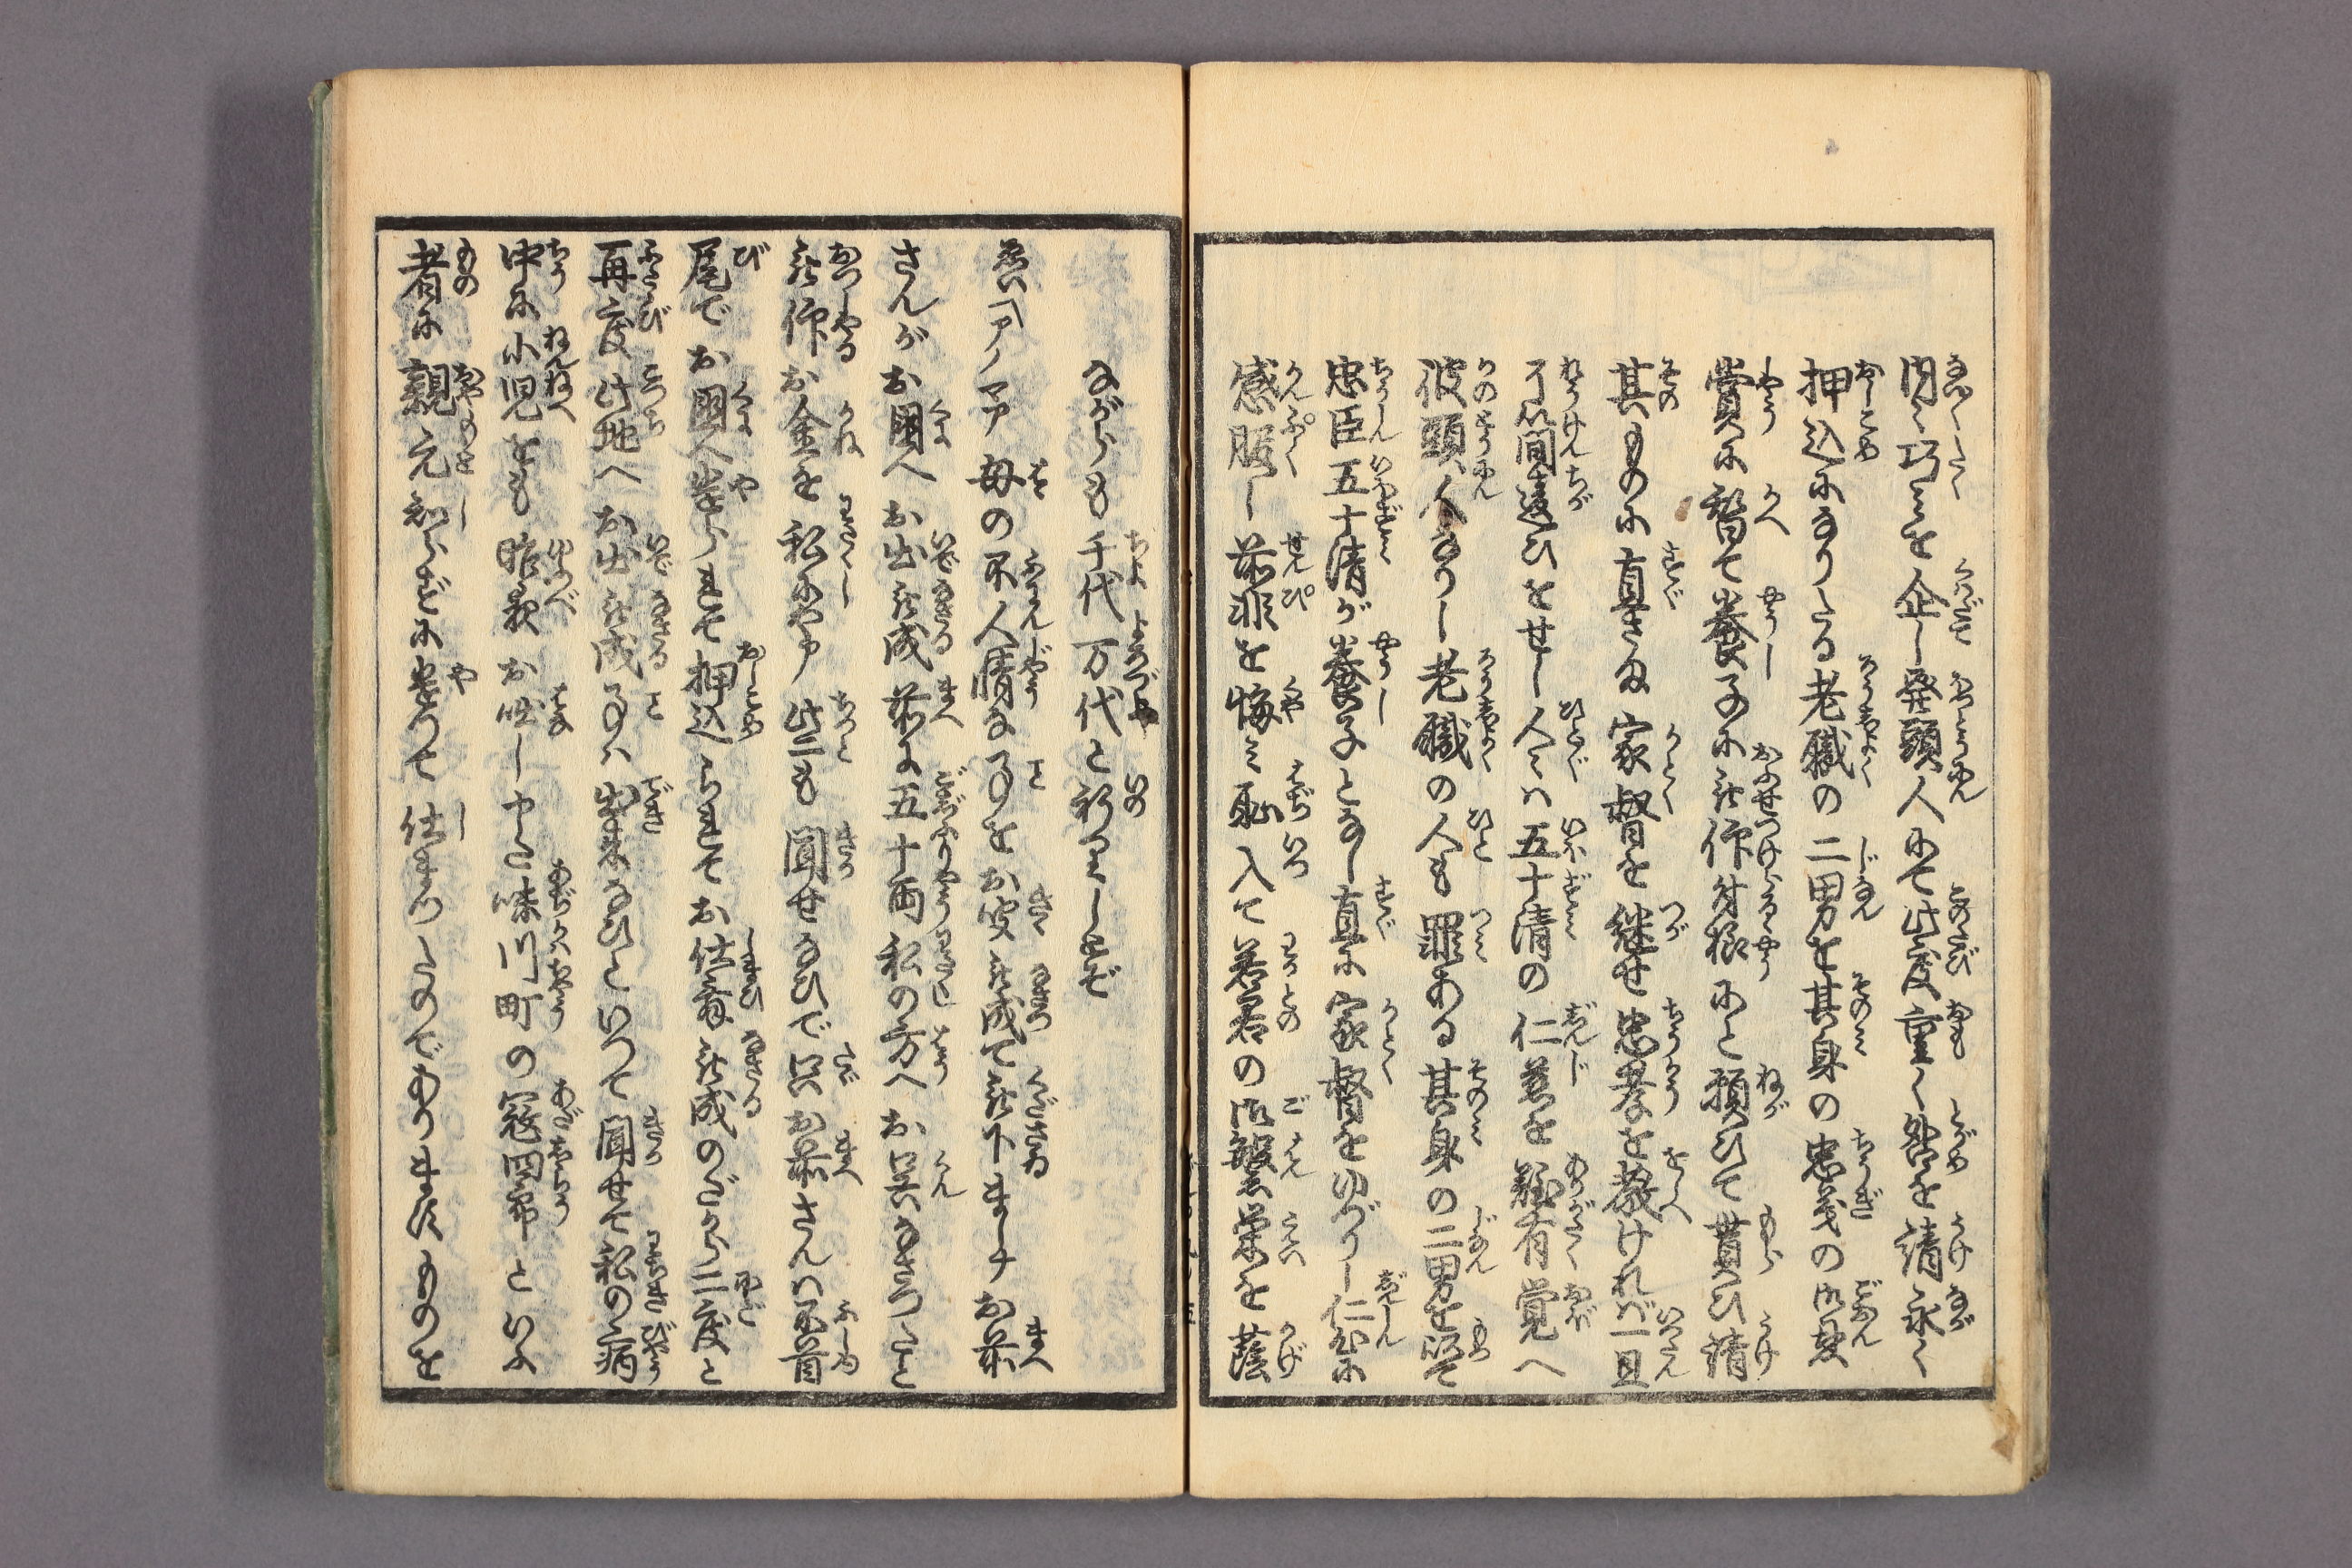 内々巧みを企し発頭人にて此度重く咎を請永く
押込になりたる老職の二男を其身の忠義の御褒
賞に替て養子に被仰付様にと願ひて貰ひ請
其ものに直さま家督を継せ忠孝を教けれバ一旦
了簡違ひをせし人々ハ五十清の仁慈を難有覚へ
彼頭人なりし老職の人も罪ある其身の二男を以て
忠臣五十清が養子となし直に家督をゆづりし仁心に
感服し前非を悔ミ恥入て若君の御繁栄を蔭
ながらも千代万代と祈りましたぞ
ゑい「アノマア母の不人情な事をお聞被成て被下ましナお前
さんがお国へお出被成前に五十両私の方へお呉なさつたと
被仰お金を私にやア些とも聞せないで只お前さんハ不首
尾でお国へ遣られて押込られてお仕舞被成のだから二度と
再度此地へお出被成事ハ出来ないといつて聞せて私の病
中に小児をも昨夜お咄し申た味川町の寇四郎といふ
者に親元知らずに遣つて仕まつたのでありま春ものを